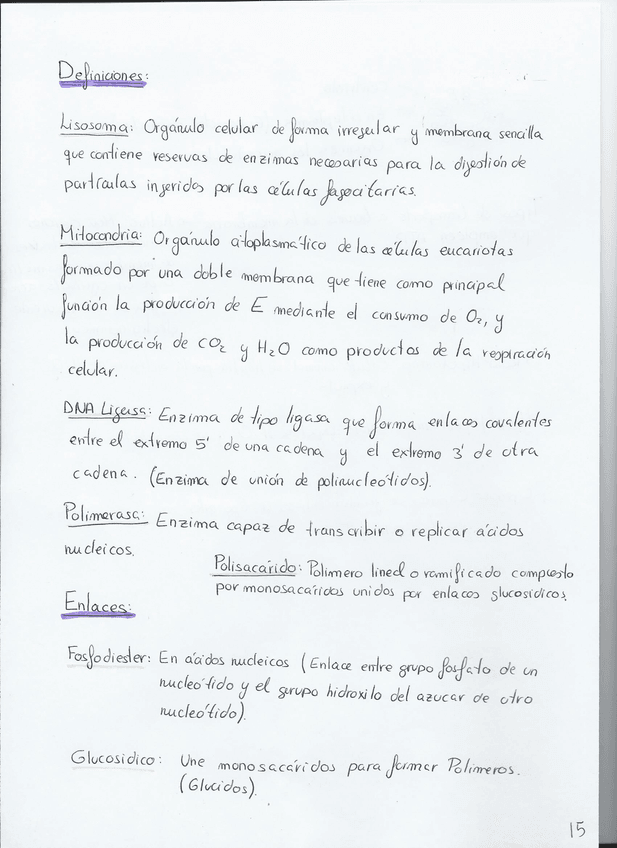 Definiciones:
Lisosoma: Orgánulo celular de forma irregular y membrana sencilla
que contiene reservas de enzimas necesarias para la digestión de
partículas ingeridos por las células fagocitarias.
Mitocondria: Orgánulo citoplasmático de las células eucariotas
formado por una doble membrana que tiene como principal
función la producción de E mediante el consumo de O₂, y
la producción de CO₂ y H₂O como productos de la respiración
celular.
DNA Ligasa: Enzima de tipo ligasa que forma enlaces covalentes
entre el extremo 5' de una cadena y el extremo 3' de otra
cadena. (Enzima de unión de polinucleótidos).
Polimerasa: Enzima capaz de transcribir o replicar ácidos
nucleicos.
Polisacárido: Polimero lineal o ramificado compuesto
por monosacáridos unidos por enlaces glucosídicos.
Enlaces:
Fosfodiester: En ácidos nucleicos (Enlace entre grupo fosfato de un
nucleótido y el grupo hidroxilo del azucar de otro
nucleótido).
Glucosidico: Une monosacáridos para formar Polimeros.
(Glucidos).
15